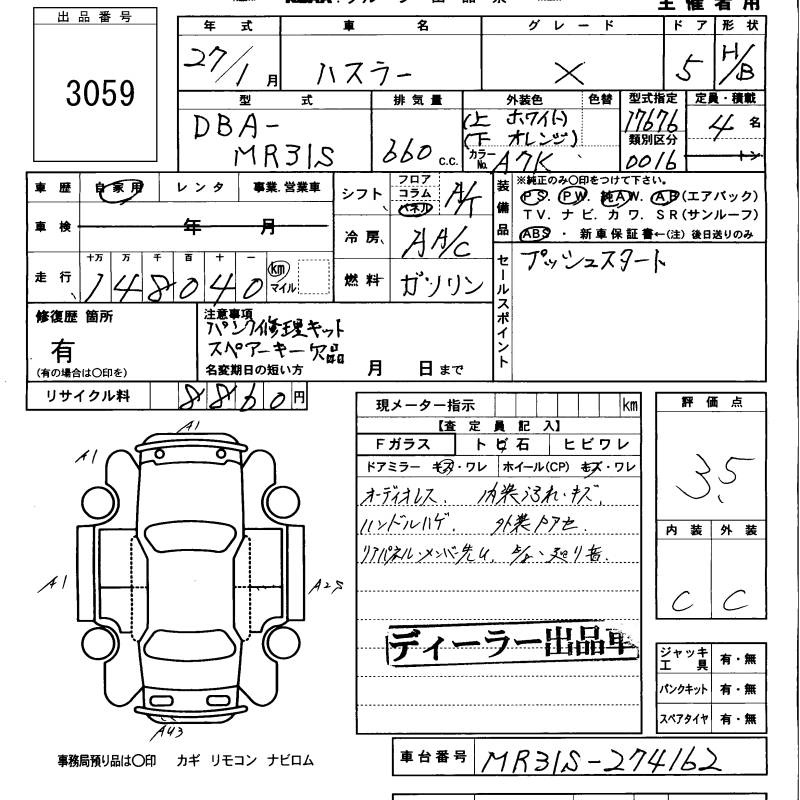 出品番号
3059
主催者用
年式 車名 グレード ドア 形状
27/1月 ハスラー X 5 H/B
型式 排気量 外装色 色替 型式指定 定員・積載
DBA-MR31S 660 c.c. (上 ホワイト) (下 オレンジ) 17676 4名
カラーNo. A7K 類別区分 0016 トン
車歴 自家用 レンタ 事業.営業車
車検 年 月
走行 十万 万 千 百 十 一
148040 km マイル
シフト フロア コラム パネル A/T
冷房 AA/C
燃料 ガソリン
装備品 ※純正のみ〇印をつけて下さい。
PS. PW. 純AW. AB(エアバック)
TV. ナビ. カワ. SR(サンルーフ)
ABS ・ 新車保証書←(注) 後日送りのみ
セールスポイント
プッシュスタート
修復歴 箇所
有
(有の場合は〇印を)
注意事項
パンク修理キット
スペアーキー欠品
名変期日の短い方 月 日まで
リサイクル料 8860円
現メーター指示 km
【査定員記入】
Fガラス トビ石 ヒビワレ
ドアミラー キズ・ワレ ホイール(CP) キズ・ワレ
オーディオレス. 内装汚れ・キズ.
ハンドルハゲ. 外装色アセ.
ディーラー出品車
評価点
3.5
内装 外装
C C
A1
A1
A1
A2S
AU3
ジャッキ工具 有・無
パンクキット 有・無
スペアタイヤ 有・無
事務局預り品は〇印 カギ リモコン ナビロム
車台番号 MR31S-274162